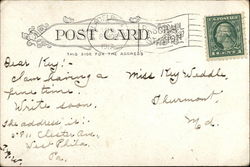 POST CARD
THIS SIDE FOR THE ADDRESS
Dear Key:-
I am having a
fine time.
Write soon.
The address is:-
Chester Ave,
West Phila.
Pa.
Miss Key Weddle,
Thurmont,
Md.